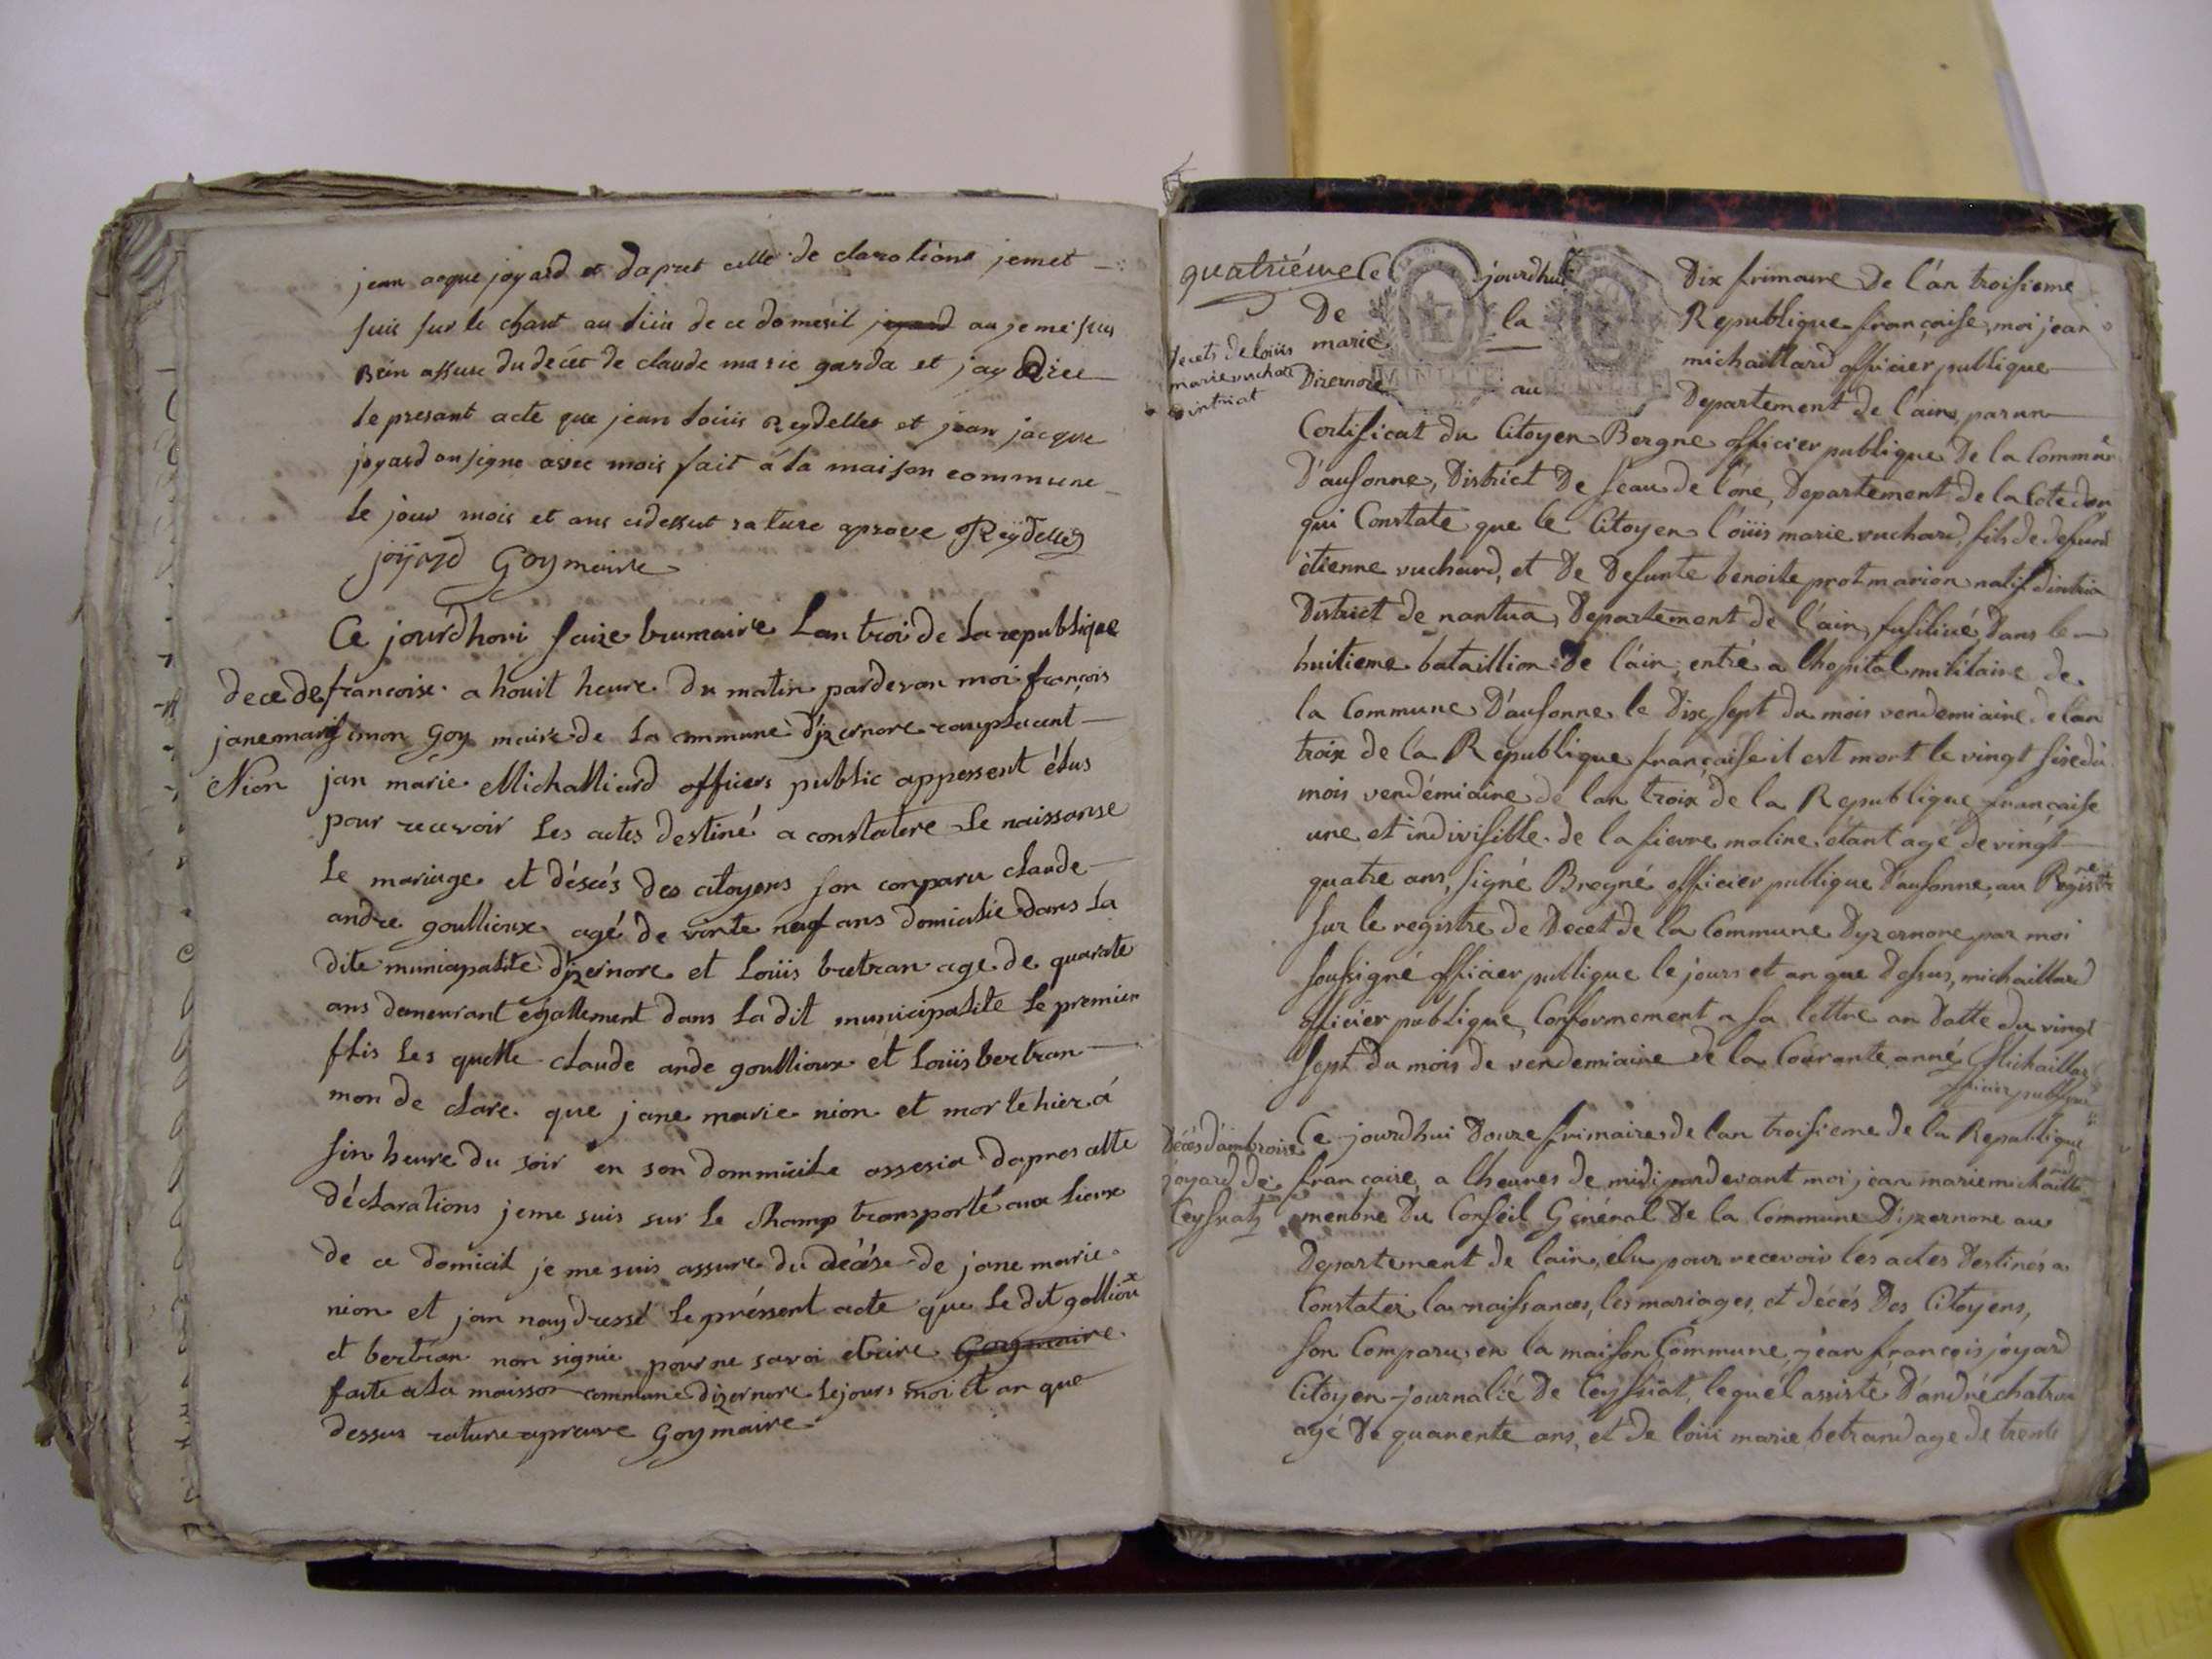 jean acque joyard et dapret celle de clarations jemet
suis sur le chant au lieu de ce domesil joyard au je me suis
Bein assure du decet de claude marie garda et jay Drice
le presant acte que jean loüis Reydellet et jean jacque
joyard on signe avec mois fait á la maison commune
le jour mois et ans cidessut rature aprove Reydellet
joÿard Goy maire
Ce jourdhoui saize brumaire Lan troi de la republique
dece de francoise a houit heure du matin pardevan moi françois
jane marie simon Goy maire de la cmmune d'jzernore ramplacent
Nion jan marie Michalliard officiers public appessent élus
pour recevoir les actes destiné a constatere le naissanse
le mariage et désées des citoyens son conparu claude
andre goullioux agé de vinte neuf ans domicilie dans la
dite municipalite d'jzernore et Loüis bretran age de quarate
ans demeurant egallement dans ladit municipalite le premier
flis les quelle claude ande goullioux et Louis bertran
mon de clare que jane marie nion et mor le hier á
sin heure du soir en son dommicile assesia dapres alte
déclarations jeme suis sur le champ transporté aux lieux
de ce domicil je me suis assure du décése de jane marie
nion et jan nay dressé le préssent acte que le dit gollioux
et bertran non signie pour ne savoi ecrire Goy maire
faite a la maisson commune dizernore le jours moi et an que
dessus rature apreuve Goy maire
quatriéme Ce jourdhui Dix frimaire De l'án troisieme
De la Republique française, moi jean
Decets de loüis marie michaillard officier publique
marie vuchard Dizernore au Departement de l'ain, par un
Dintriat
Certificat du Citoyen Bergne officier publique De la Commune
D'ausonne, District De seau de lóne, Departement de la Cote dor
qui Constate que le Citoyen l'oüis marie vuchard, fils de Defunt
étienne vuchard, et De Defunte benoite prot marion natif dintria
District de nantua, Departement de l'ain, fusilié Dans le
huitieme bataillion De l'áin, entré a lhopital militaire de
la Commune D'ausonne le Dix sept du mois vendemiaire delan
troix de la Republique française il est mort le vingt sixe du
mois vendémiaire de lan troix de la Republique française
une et indivisible de la fievre maline étant agé de vingt
quatre ans, signé Brogné officier publique D'ausonne, au Registre
sur le registre de Decet de la Commune Dyzernore par moi
soussigné officier publique le jours et an que Dessus, michaillard
officier publique, Conformement a sa lettre an Datte du vingt
sept du mois de vendemiaire de la Courante anné Michaillar
officier publique
Décés d'ambroise Ce jourdhui Douze frimaire de lan troisieme de la Republique
joyard de française, a lheures de midi pardevant moi jean marie michaillard
Ceyssiat menbre Du Conseil Général De la Commune Dizernore au
Departement de lain, élu pour recevoir les actes Destinés a
Constater la naissances, les mariages, et décés Des Citoyens,
son Comparu en la maison Commune, jean françois joyard
Citoyen journalié De Ceyssiat, lequél assisté D'andré chatron
agé De quarente ans, et de loüi marie betrand age de trente